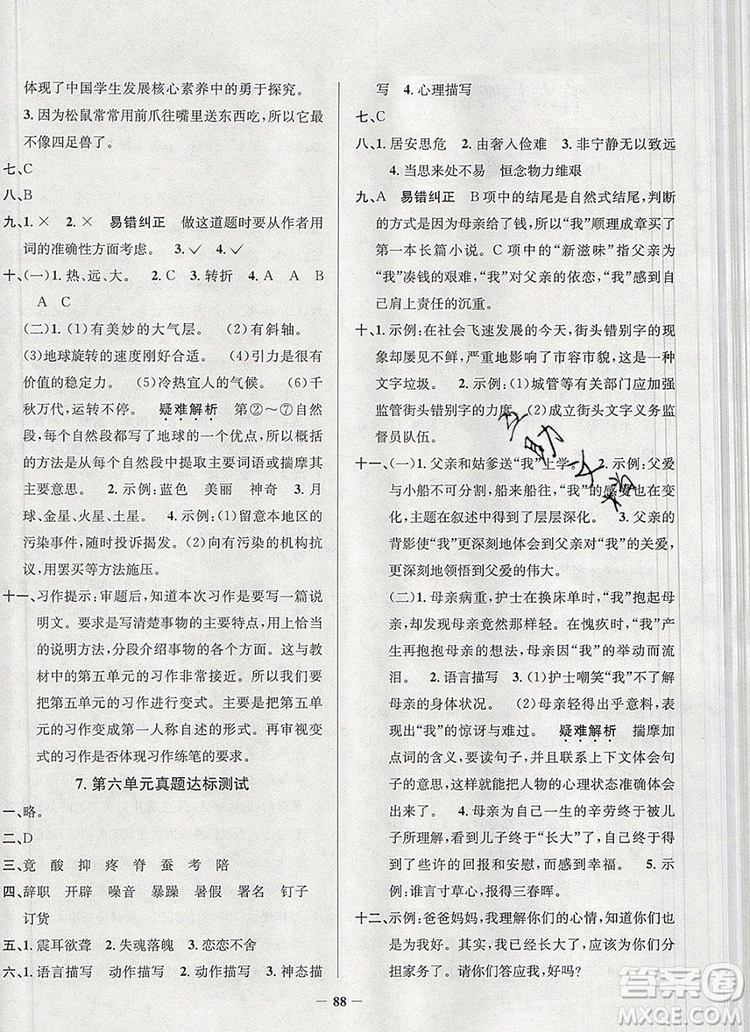 体现了中国学生发展核心素养中的勇于探究。
3. 因为松鼠常常用前爪往嘴里送东西吃,所以它最
不像四足兽了。
七、C
八、B
九、1. × 2. × 易错纠正 做这道题时要从作者用
词的准确性方面考虑。 3. ✓ 4. ✓
十、(一)1. 热、远、大。 2. C 3. 转折 4. A A B
A C
(二)1. (1)有美妙的大气层。 (2)有斜轴。
(3)地球旋转的速度刚好合适。 (4)引力是很有
价值的稳定力。 (5)冷热宜人的气候。 (6)千
秋万代,运转不停。 疑难解析 第②~⑦自然
段,每个自然段都写了地球的一个优点,所以概
括的方法是从自然段中提取主要词语或揣摩主
要意思。 2. 示例:蓝色 美丽 神奇 3. 月
球、金星、火星、土星。 4. 示例:(1)留意本地区的
污染事件,大胆投诉揭发。(2)向有污染的机构抗
议,用罢买等方法施压。
十一、习作提示:审题后,知道本次习作是要写一篇说
明文。要写清楚事物的主要特点,试着用上恰当
的说明方法,分段介绍事物的一些方面。这与教
材中的第五单元的习作非常接近。所以,我们只
要把第五单元的习作进行变式。第五单元的习
作变成第一人称来自述的形式。再审视变
式的习作是否体现习作练笔的要求。
7. 第六单元真题达标测试
一、略。
二、D
三、竟 酸 抑 疼 脊 蚕 考 陪
四、辞职 开辟 噪音 暴躁 暑假 署名 钉子
订货
五、1. 震耳欲聋 2. 失魂落魄 3. 恋恋不舍
六、1. 语言描写 动作描写 2. 动作描写 3. 神态描
写 4. 心理描写
七、C
八、1. 居安思危 2. 由奢入俭难 3. 非宁静无以致远
4. 当思来处不易 恒念物力维艰
九、A 易错纠正 B项中的结尾是自然式结尾,判断
的方式是因为母亲给了钱,“我”顺理成章买了
第一本长篇小说。C项中的“新滋味”指父亲为
“我”凑钱的艰难,“我”对父亲的依恋,“我”感到
自己肩上责任的沉重。
十、1. 示例:在社会飞速发展的今天,街头错别字的现
象却屡见不鲜,严重地影响了市容市貌,这是一种
文字垃圾。 2. 示例:(1)城管等有关部门应加强
监管街头错别字的力度。(2)成立街头文字义务监
督员队伍。
十一、(一)1. 父亲和姑爹送“我”上学。 2. 示例:父爱
与小船不可分割,船来船往,“我”的感受也在变
化,主题在叙述中得到了层层深化。 3. 父亲的
背影更深刻地体会到了父亲对“我”的关爱,
更深刻地领悟到父爱的伟大。
(二)1. 母亲病重,护士在换床单时“我”抱起母
亲,母亲竟然那样轻。在愧疚时,“我”突然有一
种要哄母亲入睡的想法,并有“我”的举动而流
泪。 2. 语言描写 3. (1)护士嘲笑“我”不了解
母亲的身体状况。 (2)母亲轻得出乎意料,
表现了“我”的惊讶与难过。 疑难解析 揣摩加
点词的含义,要读句子,并联系上下文体会句子
表达的意思,把人物的心理状态准确地体会
出来。 4. 母亲为儿女付出的辛劳终于被儿
子所理解,看到儿子终于“长大”了,母亲终于得
到了些许的回报和安慰,而感动幸福。 5. 示
例:谁言寸草心,报得三春晖。
十二、示例:爸爸妈妈,我理解你们的心情,也知道你
们的难处。我已经长大了,应该为你们分
担家务了,请你们答应我,好吗?
88
互助文档
答案圈
MXQE.COM